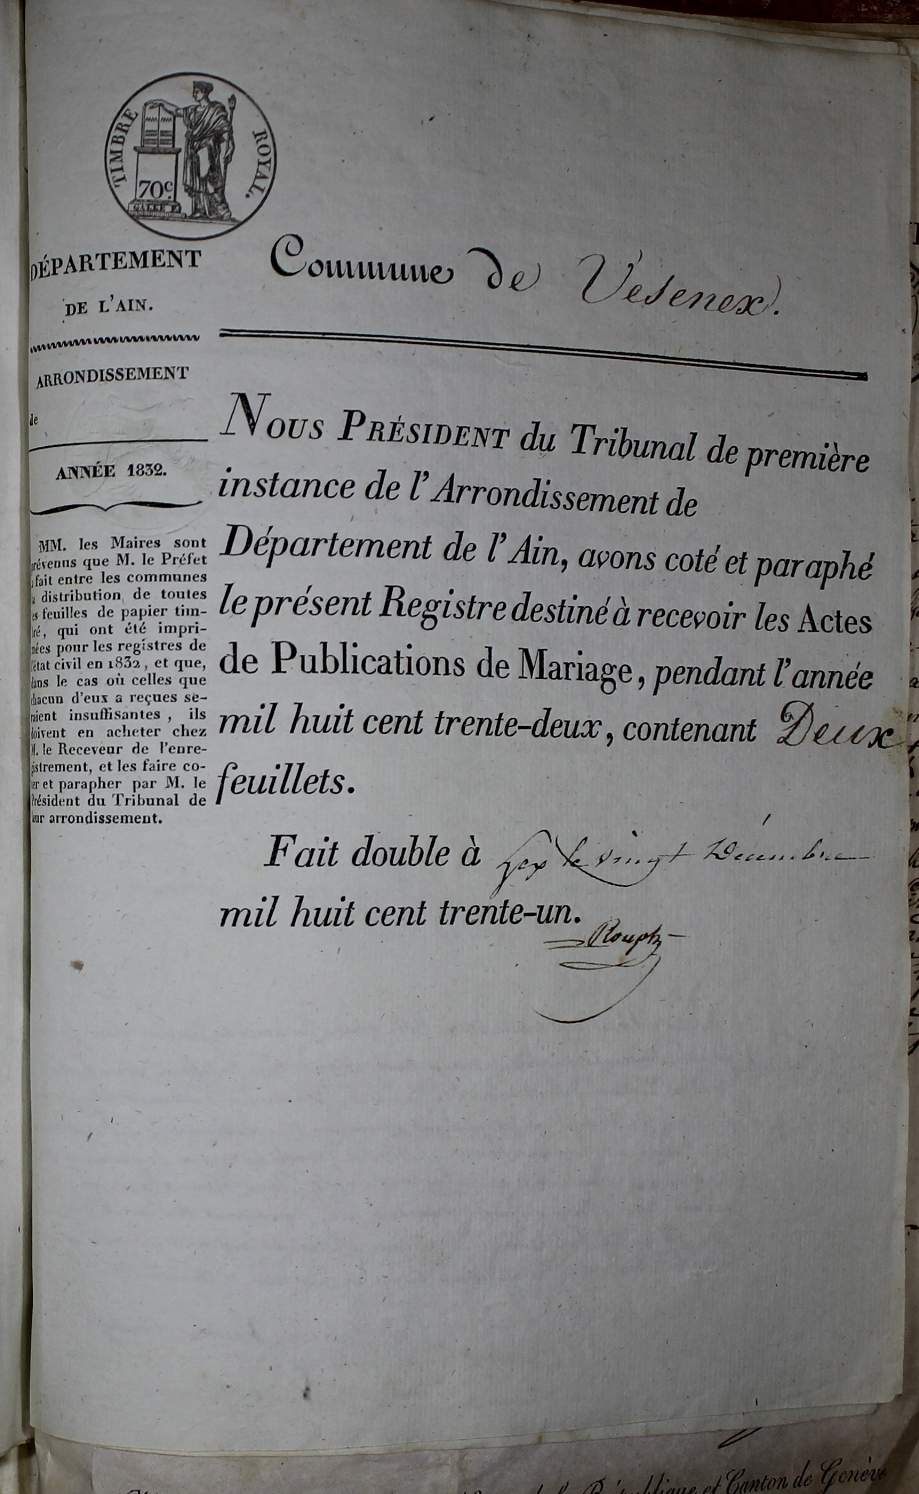 TIMBRE ROYAL.
70c.
DÉPARTEMENT
DE L'AIN.
ARRONDISSEMENT
de
ANNÉE 1832.
MM. les Maires sont
prévenus que M. le Préfet
a fait entre les communes
la distribution de toutes
les feuilles de papier tim-
bré, qui ont été impri-
mées pour les registres de
l'état civil en 1832, et que,
dans le cas où celles que
chacun d'eux a reçues se-
raient insuffisantes, ils
doivent en acheter chez
M. le Receveur de l'enre-
gistrement, et les faire co-
ter et parapher par M. le
Président du Tribunal de
leur arrondissement.
Commune de Vesenex.
Nous Président du Tribunal de première
instance de l'Arrondissement de
Département de l'Ain, avons coté et paraphé
le présent Registre destiné à recevoir les Actes
de Publications de Mariage, pendant l'année
mil huit cent trente-deux, contenant Deux
feuillets.
Fait double à Gex le vingt Décembre
mil huit cent trente-un.
République et Canton de Genève